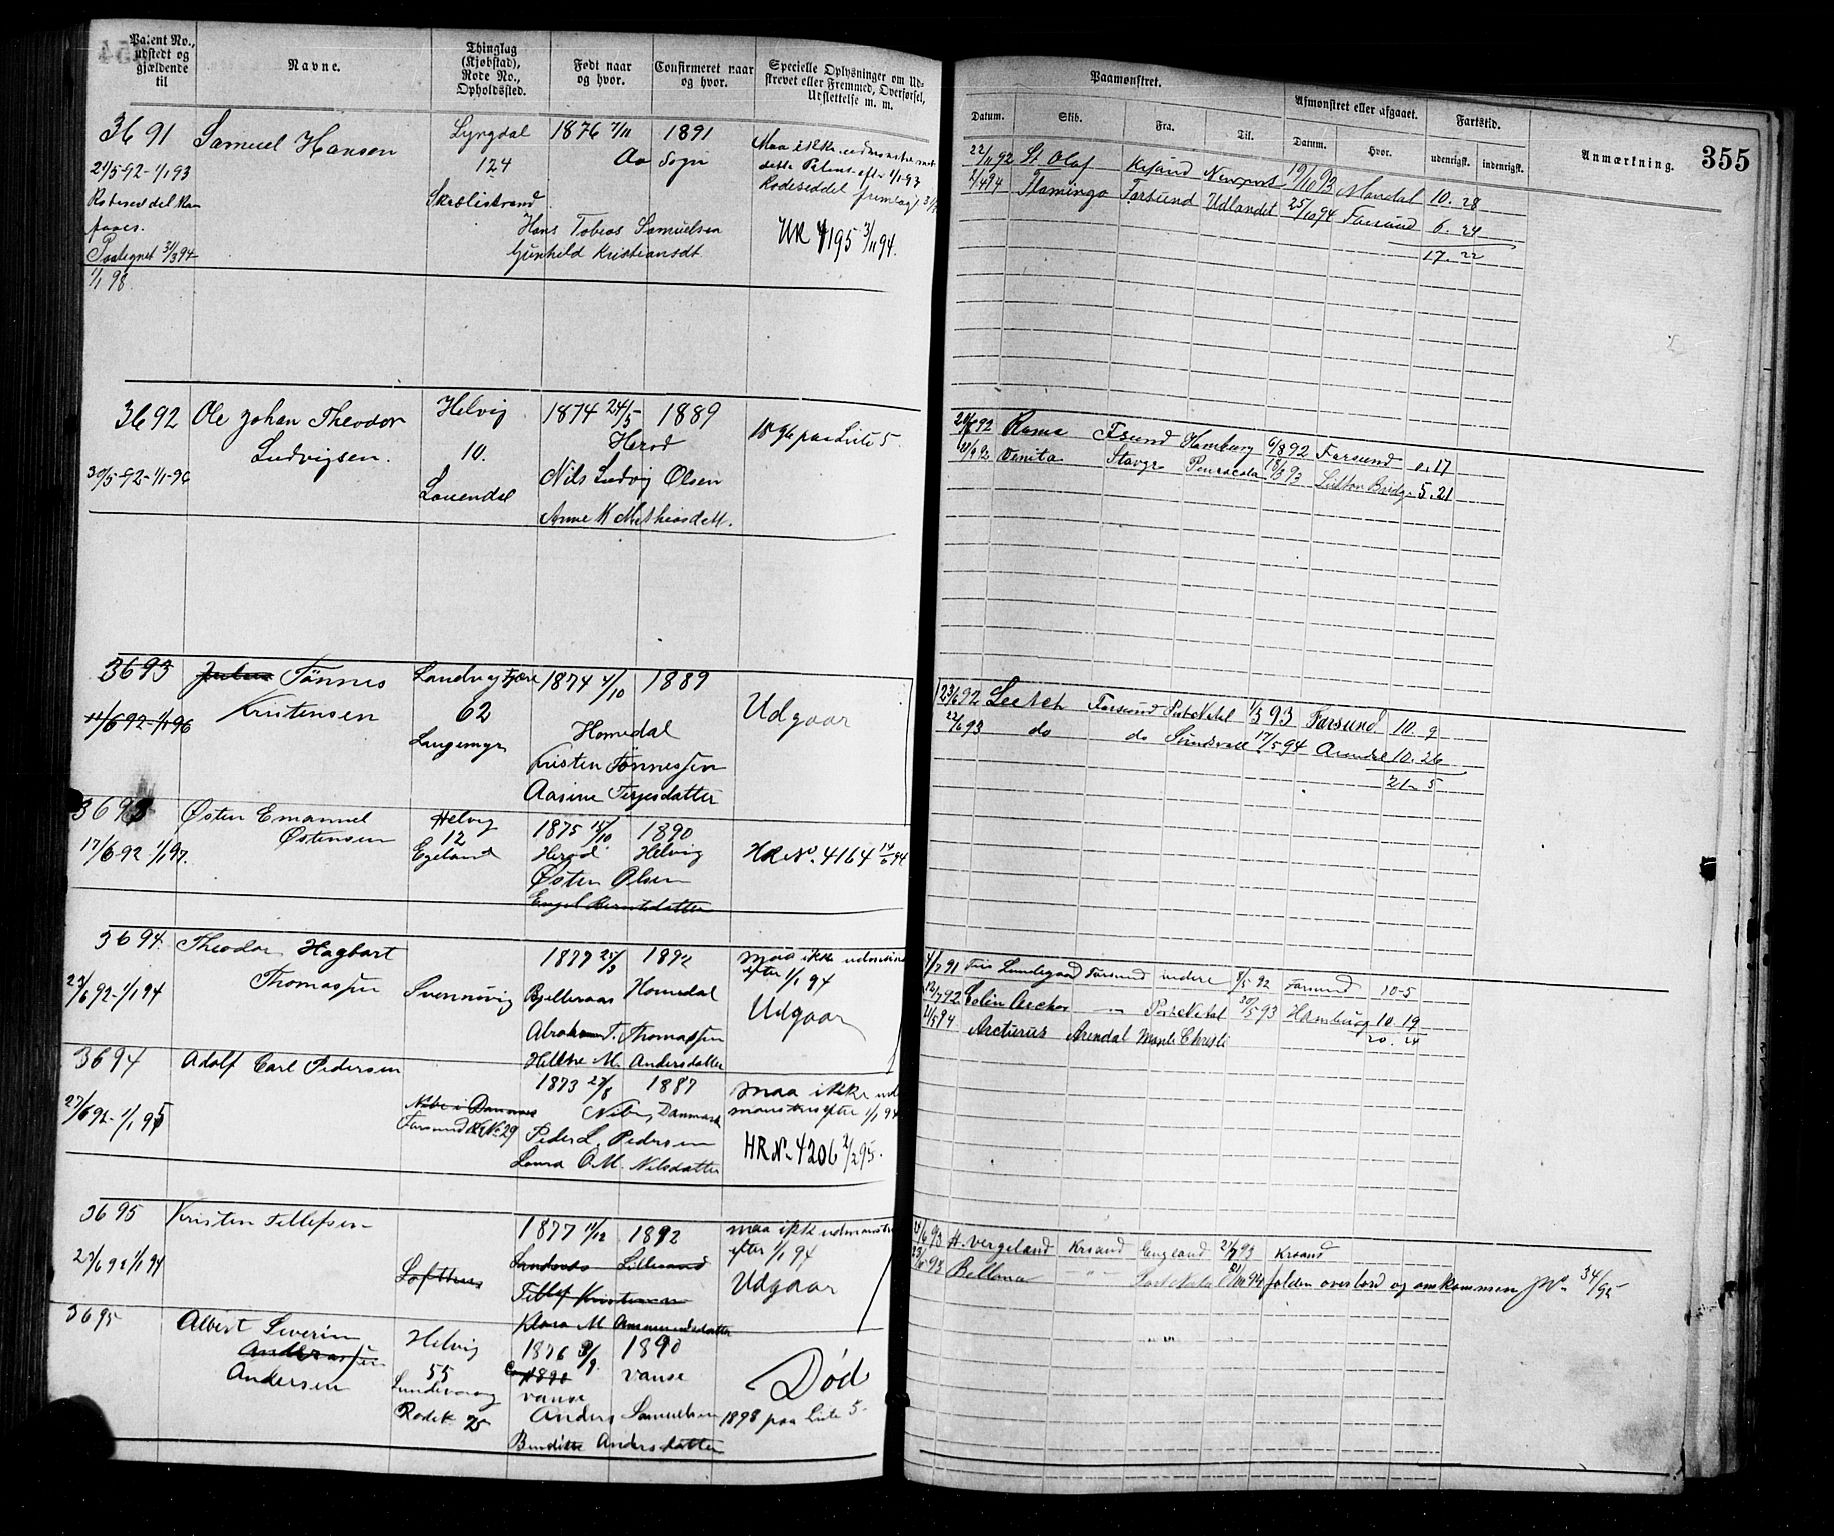 Patent No., udstedt og gjældende til
Navne.
Thinglag (Kjøbstad), Rode No., Opholdssted.
Født naar og hvor.
Confirmeret naar og hvor.
Specielle Oplysninger om Udskrevet eller Fremmed, Overførsel, Udslettelse m. m.
Paamønstret.
Afmønstret eller afgaaet.
Fartstid.
Anmærkning.
355
Datum.
Skib.
Fra.
Til.
Datum.
Hvor.
udenrigsk.
indenrigsk.
3691 Samuel Hansen Lyngdal 1876 7/11 1891
21/5-92-1/1 93 124 Aa Sogn
Skrælistrand
Hans Tobias Samuelsen
Gunhild Kristiansdt.
Paategnet 3/3 94
1/1 98
Maa ikke udmønstre med
dette Patent efter 1/1-93
Rodeseddel
UR 4195 3/11 94.
22/11 92 St Olaf Krsand Newport 19/10 93 Mandal 10. 28
2/4 94 Flamingo Farsund Udlandet 25/10 94 Farsund 6. 24
17. 22
3692 Ole Johan Theodor Helvig 1874 24/5 1889
Ludvigsen. 10. Herod
30/5-92-1/1-96 Lauendal Nils Ludvig Olsen
1896 paa Liste 5
Rama Fsund Hamburg 6/8 92 Farsund 0. 17
Stavgr Pensacola 5. 21
3693 Tønnes Landvig Fjære 1874 4/10 1889
Kristensen 62 Homedal
11/6 92-1/1 96 Langemyr Kristen Tønnessen
Aasine Terjesdatter
Udgaar
23/6 92 Farsund Port Natal 1/3 93 Farsund. 10. 9
22/6 93 do do Sundsvall 17/5 94 Arendal 10. 26
21 5
3693 Østen Emanuel Helvig 1875 15/10 1890
Østensen 12 Herod Helvig
17/6-92 1/1 97. Egeland Østen Olsen
Engel Berntsdatter
HR No. 4164 14/6 94
3694. Theodor Hagbart 1877 25/3 1892
Thomassen Homedal
23/6 92-1/1 94 Abraham T. Thomassen
Hellene M. Andersdatter
maa ikke udmønstre
efter 1/1 94
Udgaar
4/7 91 Lundegaard Farsund indere 8/5 92 Farsund 10-5
12/7 92 Port Natal 30/5 93 Hamburg 10. 19
20. 24
21/5 94 Arcturus Arendal Monte Christi
3694 Adolf Carl Pedersen 1873 27/8 1887
27/6 92-1/1 95 Nibe i Danmark Nibe, Danmark
Farsund RNo 29 Peder L. Pedersen
Laura O. M. Nilsdatter
maa ikke ud-
mønstres efter 1/1 94
HR No 4206 2/2 95.
3695 Kristen Tellefsen 1877 11/12 1892
23/6 92 1/1 94 Lofthus Landvik Lillesand
Tellef Kristensen
Klara M Amundsdatter
maa ikke udmønstre
efter 1/1 94
Udgaar
H. Vergeland Krsand England Krsand
Bellona " " Port Natal falden overbord og omkommen JNo. 34/95
3695 Albert Severin Helvig 1876 9/9. 1890
Anderassen 55 vanse
Andersen vanse
Rodek 75 Anders Samuelsen
Benditte Andersdatter
Død
1898 paa Liste 5